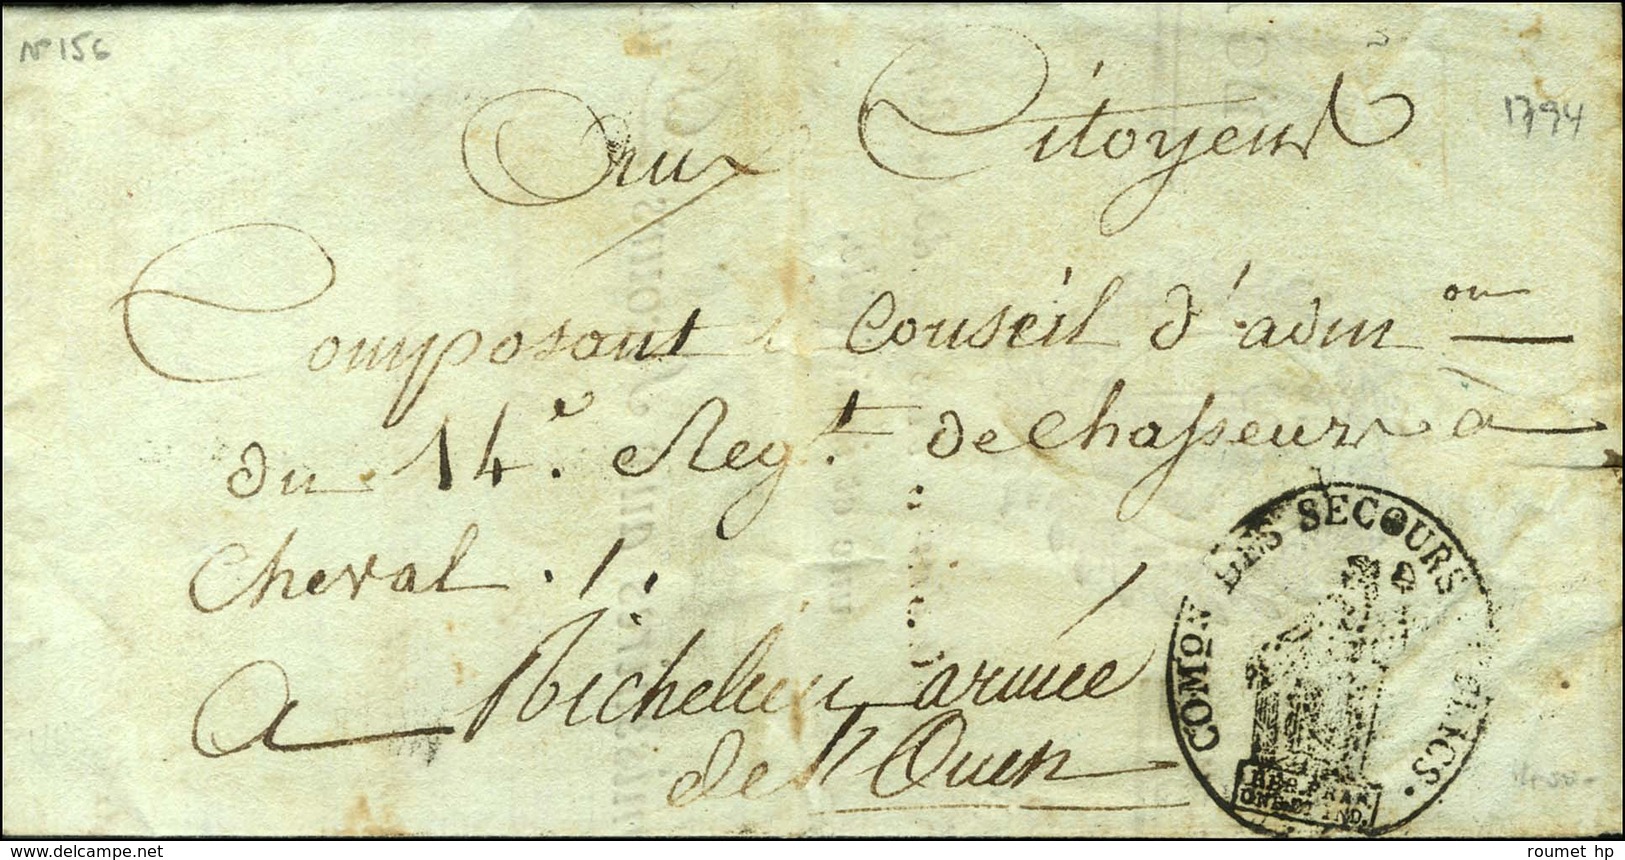 N° 156
1794
Aux Citoyens
Composant le Conseil d'adm on
du 14e. Regt. de Chasseurs à
Cheval
a Richelieu armée
de l'Ouest
COMON DES SECOURS PUBLICS.
REP. FRAN
ONE ET IND.
delcampe.net
roumet hp